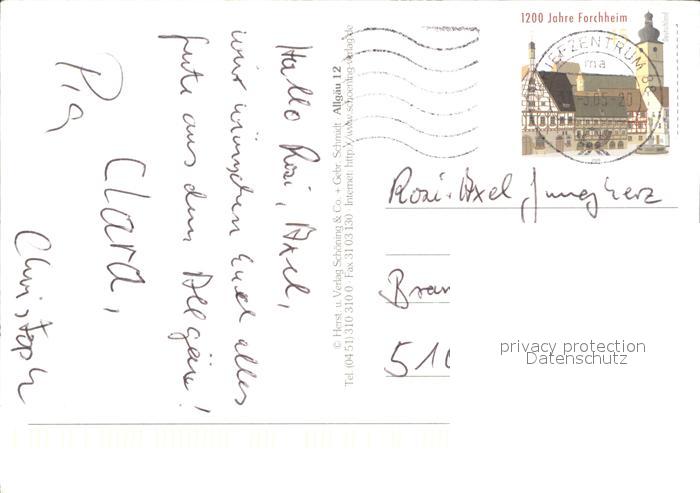 Hallo Rosi, Axel,
wir wünschen Euch alles
gute aus dem Allgäu!
Pia
Clara,
Christoph
© Herst. u. Verlag Schöning & Co. + Gebr. Schmidt Allgäu 12
Tel. (04 51) 310 310 0 · Fax 31 03 130 · Internet: http://www.schoening-verlag.de
1200 Jahre Forchheim
Deutschland
BRIEFZENTRUM 86
ma
Rosi + Axel Jungherz
Bran
510
privacy protection
Datenschutz